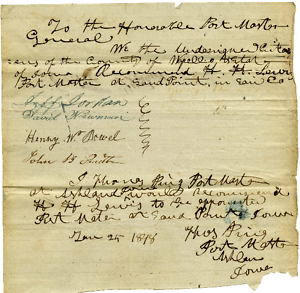 To the Honorable Post Master
General
We the undersigned Citi
zens of the County of Wapello State
of Iowa Recommend H. H. Lewis
Post Master at Sand Point, in said Co
Jeff Jordan
David Newman
Henry Wm Dowel
John B
I Thomas Ping Post Master
at Ashland Iowa Recommend
H H Lewis to be appointed
Post Master at Sand Point Iowa
Jan 25 1878
Thos Ping
Post Mast
Ashlan
Iowa